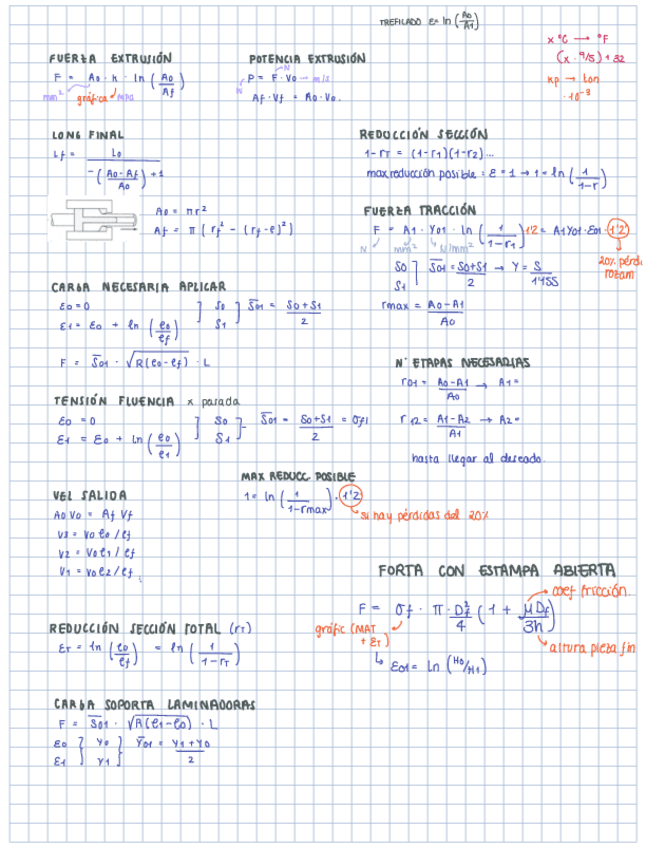 TREFILADO ε = ln (A0/A1)
x °C → °F
(x · 9/5) + 32
kp → ton
· 10⁻³
FUERZA EXTRUSIÓN
F = A0 · k · ln (A0/Af)
mm² gráfica MPa
POTENCIA EXTRUSIÓN
N
P = F · V0 → m/s
W
Af · Vf = A0 · V0.
LONG FINAL
Lf = L0 / (-((A0-Af)/A0) + 1)
A0 = πr²
Af = π [rf² - (rf-e)²]
REDUCCIÓN SECCIÓN
1-rT = (1-r1)(1-r2)...
max reducción posible = ε = 1 → 1 = ln (1/(1-r))
FUERZA TRACCIÓN
F = A1 · Y01 · ln (1/(1-r1)) 1'2 = A1 Y01 · E01 · 1'2
N mm² N/mm²
20% pérdi
rozam
S0
S1 ] S̄01 = (S0+S1)/2 → Y = S/1'155
rmax = (A0-A1)/A0
CARGA NECESARIA APLICAR
ε0 = 0
ε1 = ε0 + ln (e0/ef) ] S0
S1 ] S̄01 = (S0+S1)/2
F = S̄01 · √R(e0-ef) · L
Nº ETAPAS NECESARIAS
r01 = (A0-A1)/A0 → A1 =
r12 = (A1-A2)/A1 → A2 =
hasta llegar al deseado.
TENSIÓN FLUENCIA x parada
ε0 = 0
ε1 = ε0 + ln (e0/e1) ] S0
S1 ] S̄01 = (S0+S1)/2 = σf1
MAX REDUCC POSIBLE
1 = ln (1/(1-rmax)) · 1'2
si hay pérdidas del 20%
VEL SALIDA
A0 V0 = Af Vf
V3 = V0 e0 / ef
V2 = V0 e1 / ef
V1 = V0 e2 / ef
FORTA CON ESTAMPA ABIERTA
coef fricción.
F = σf · π · Df²/4 (1 + μDf/3h)
gráfic (MAT
+ ET)
altura pieza fin
ε01 = ln (H0/H1)
REDUCCIÓN SECCIÓN TOTAL (rT)
εT = ln (e0/ef) = ln (1/(1-rT))
CARGA SOPORTA LAMINADORAS
F = S̄01 · √R(e1-e0) · L
ε0
ε1 } Y0
Y1 } Ȳ01 = (Y1+Y0)/2